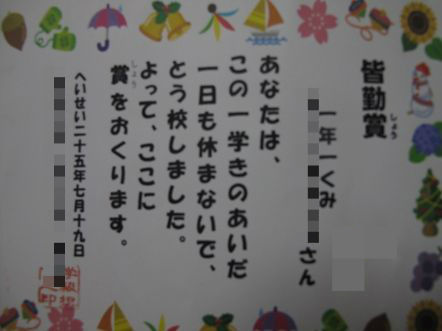 皆勤賞
しょう
一年一くみ
さん
あなたは、
この一学きのあいだ
一日も休まないで、
とう校しました。
よって、ここに
賞をおくります。
しょう
へいせい二十五年七月十九日